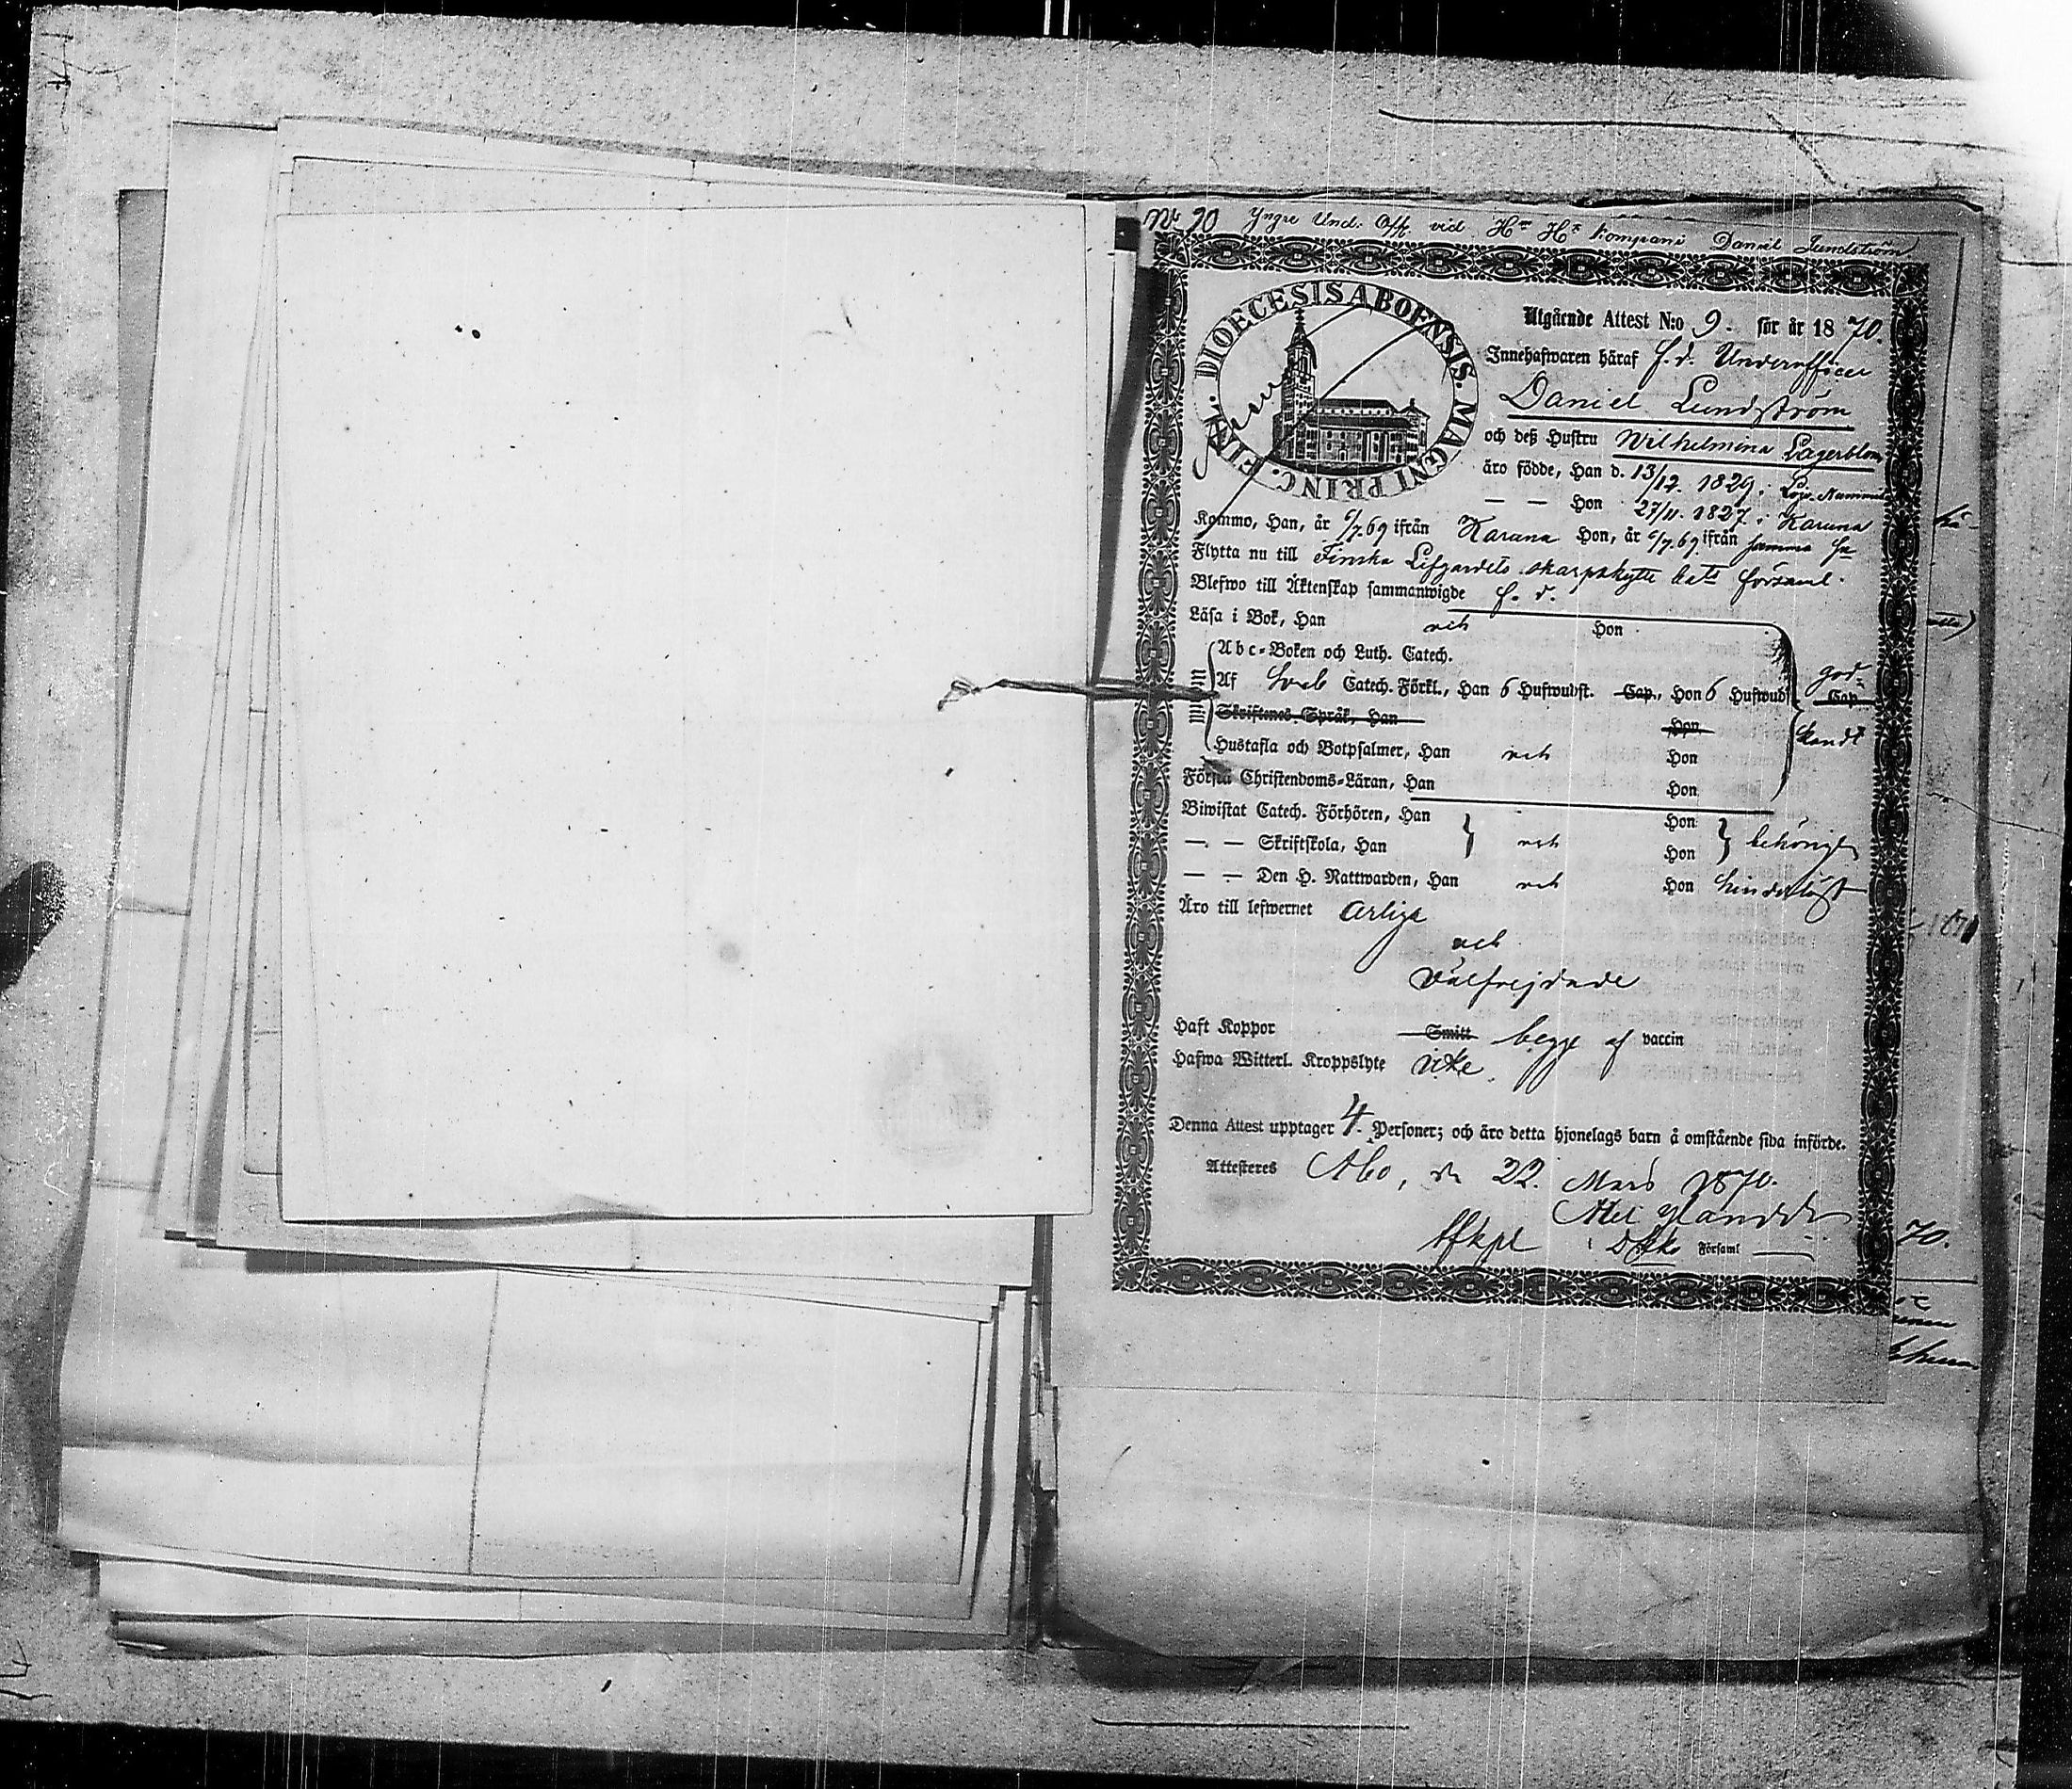 No 20 Yngre Und. Off. vid Kompani Daniel Lundström
DIOECESIS ABOENSIS. MAGNI PRINC. FINL.
Utgående Attest N:o 9. för år 1870.
Innehafwaren häraf f. d. Underofficer
Daniel Lundström
och deß Hustru Wilhelmina Lagerblom
äro födde, Han d. 13/12. 1829 i Nummis
— — Hon 27/11. 1827 i Karuna
Kommo, Han, år 6/7.69 ifrån Karuna Hon, år 6/7.69 ifrån samma
Flytta nu till Finska Lifgardets skarpskytte bat:s församl.
Blefwo till Äktenskap sammanwigde f. d.
Läsa i Bok, Han och Hon
Abc-Boken och Luth. Catech.
Af Catech. Förkl., Han 6 Hufwudst. Cap., Hon 6 Hufwudst Cap god
Skriftenes Språk, Han Hon
Hustafla och Botpsalmer, Han och Hon
Första Christendoms-Läran, Han Hon
Biwistat Catech. Förhören, Han Hon
— — Skriftskola, Han och Hon behörigt
— — Den H. Nattwarden, Han och Hon hinderlöst
Äro till lefwernet ärliga
och
välfrejdade
Haft Koppor Smitt begge af vaccin
Hafwa Witterl. Kroppslyte icke
Denna Attest upptager 4. Personer; och äro detta hjonelags barn å omstående sida införde.
Attesteras Åbo, d. 22. Mars 1870.
Församl
1870
70.